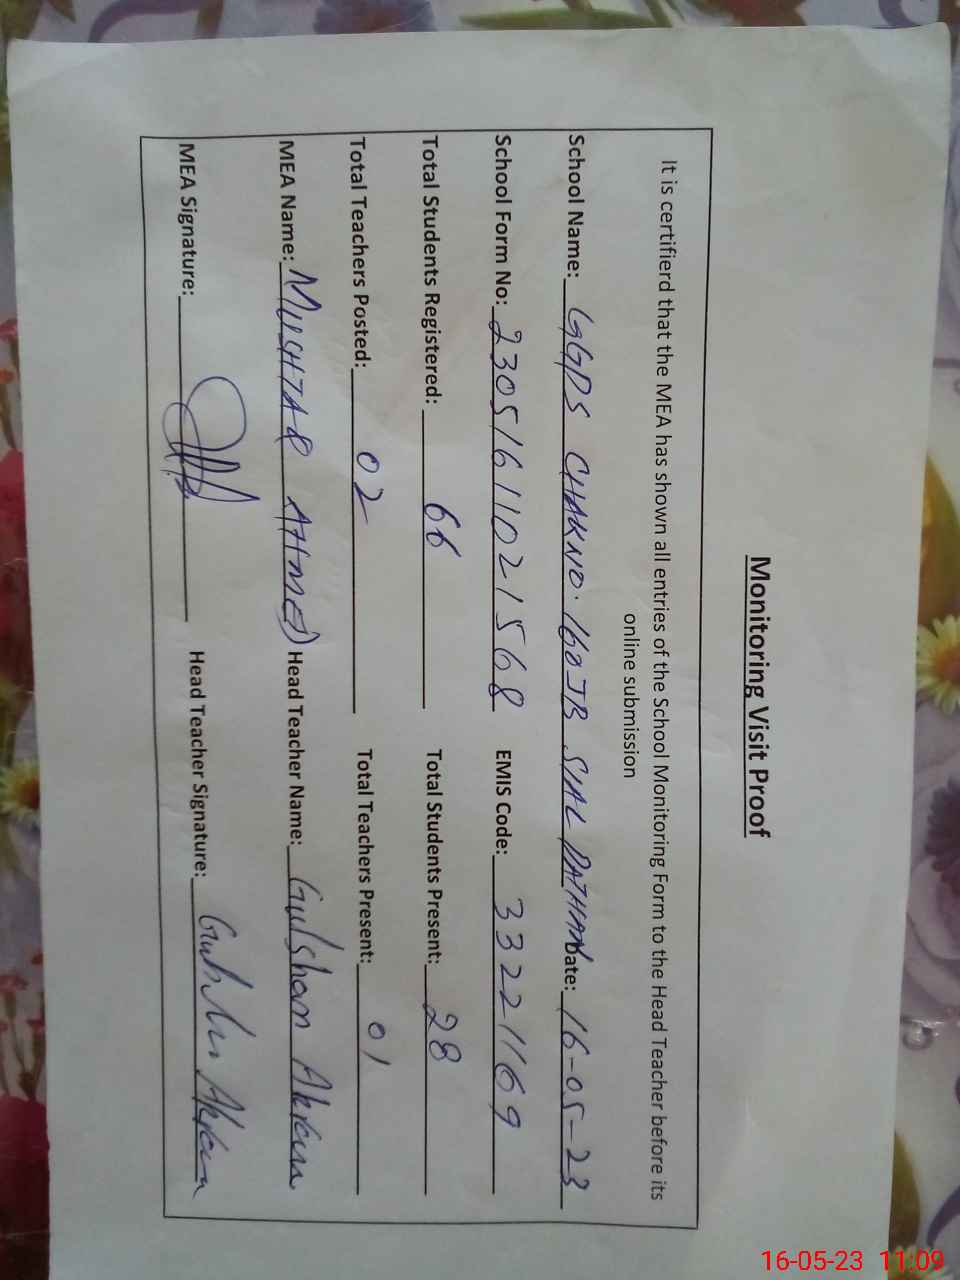 Monitoring Visit Proof
It is certifierd that the MEA has shown all entries of the School Monitoring Form to the Head Teacher before its
online submission
School Name: GGPS CHAK NO. 160 JB SIAL PATHAN Date: 16-05-23
School Form No: 23051611021568 EMIS Code: 33221169
Total Students Registered: 66 Total Students Present: 28
Total Teachers Posted: 02 Total Teachers Present: 01
MEA Name: MUSHTAQ AHMED Head Teacher Name: Gulshan Akram
MEA Signature: Head Teacher Signature: Gulshan Akram
16-05-23 11:09